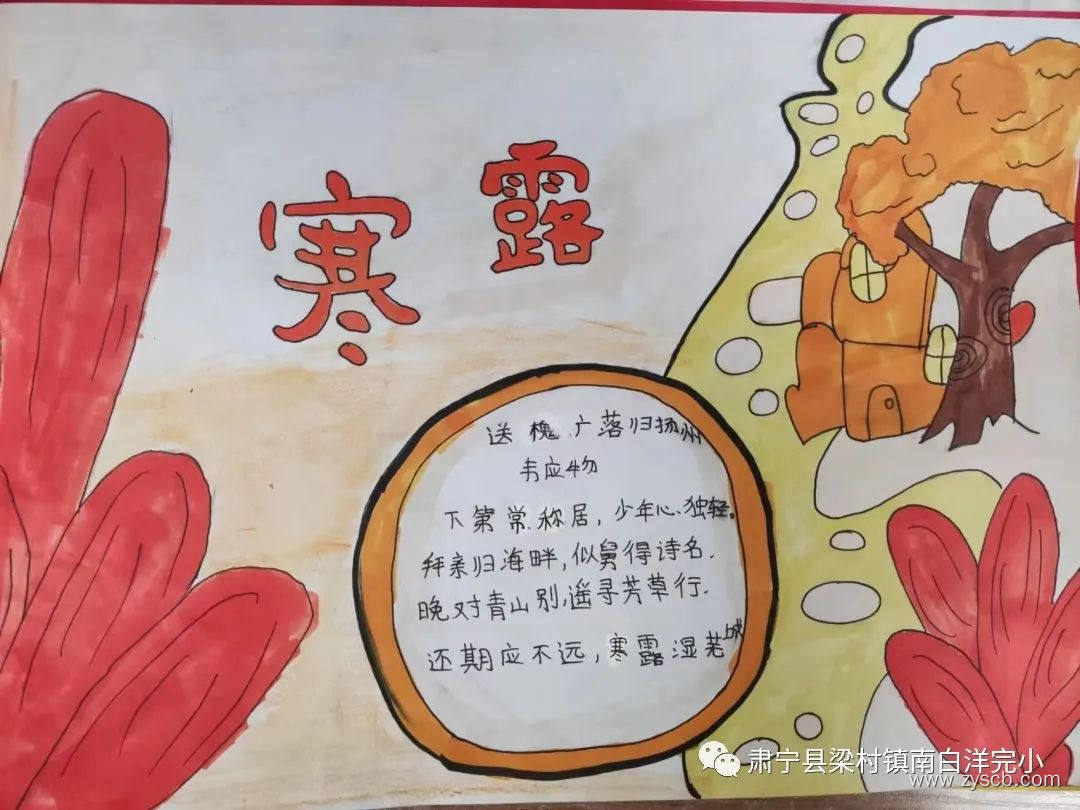 寒露
送槐广落归扬州
韦应物
下第常称居，少年心独轻。
拜亲归海畔，似舅得诗名.
晚对青山别,遥寻芳草行.
还期应不远，寒露湿芜城
肃宁县梁村镇南白洋完小
www.zyscb.com